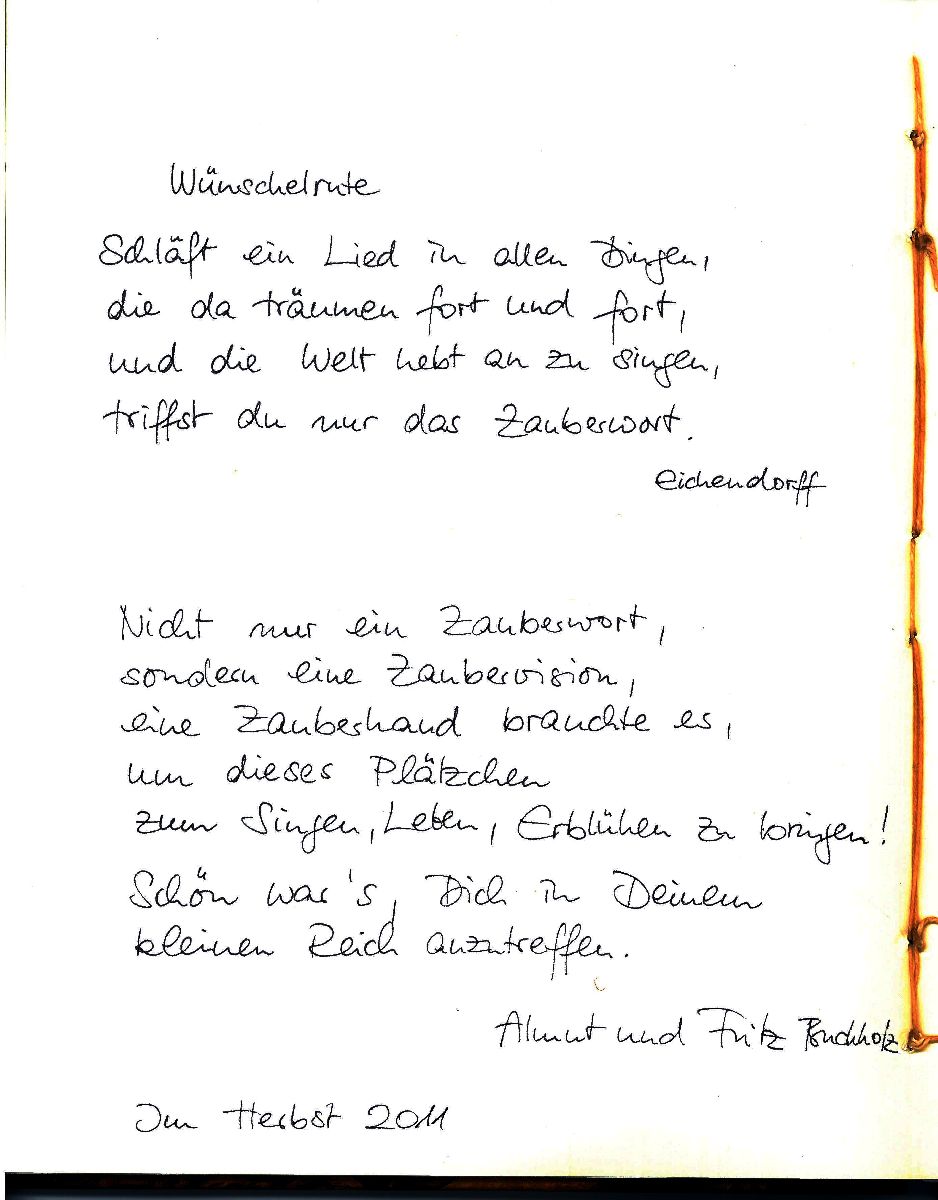 Wünschelrute
Schläft ein Lied in allen Dingen,
die da träumen fort und fort,
und die Welt hebt an zu singen,
triffst du nur das Zauberwort.
Eichendorff
Nicht nur ein Zauberwort,
sondern eine Zaubervision,
eine Zauberhand brauchte es,
um dieses Plätzchen
zum Singen, Leben, Erblühen zu bringen!
Schön war's, Dich in Deinem
kleinen Reich anzutreffen.
Almut und Fritz Buchholz
Im Herbst 2011